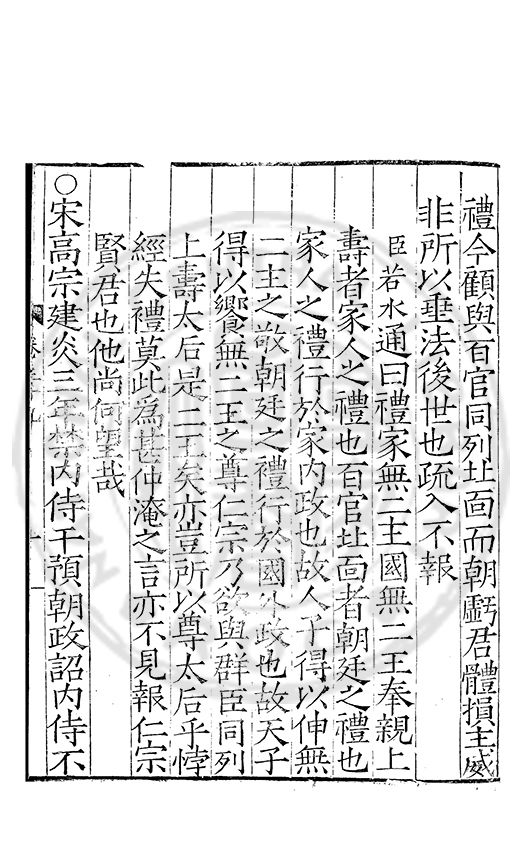 禮今顧與百官同列北面而朝虧君體損主威
非所以垂法後世也疏入不報
臣若水通曰禮家無二主國無二王奉親上
壽者家人之禮也百官北面者朝廷之禮也
家人之禮行於家內政也故人子得以伸無
二主之敬朝廷之禮行於國外政也故天子
得以饗無二王之尊仁宗乃欲與群臣同列
上壽太后是二王矣亦豈所以尊太后乎悖
經失禮莫此為甚仲淹之言亦不見報仁宗
賢君也他尚何望哉
○宋高宗建炎三年禁內侍干預朝政詔內侍不